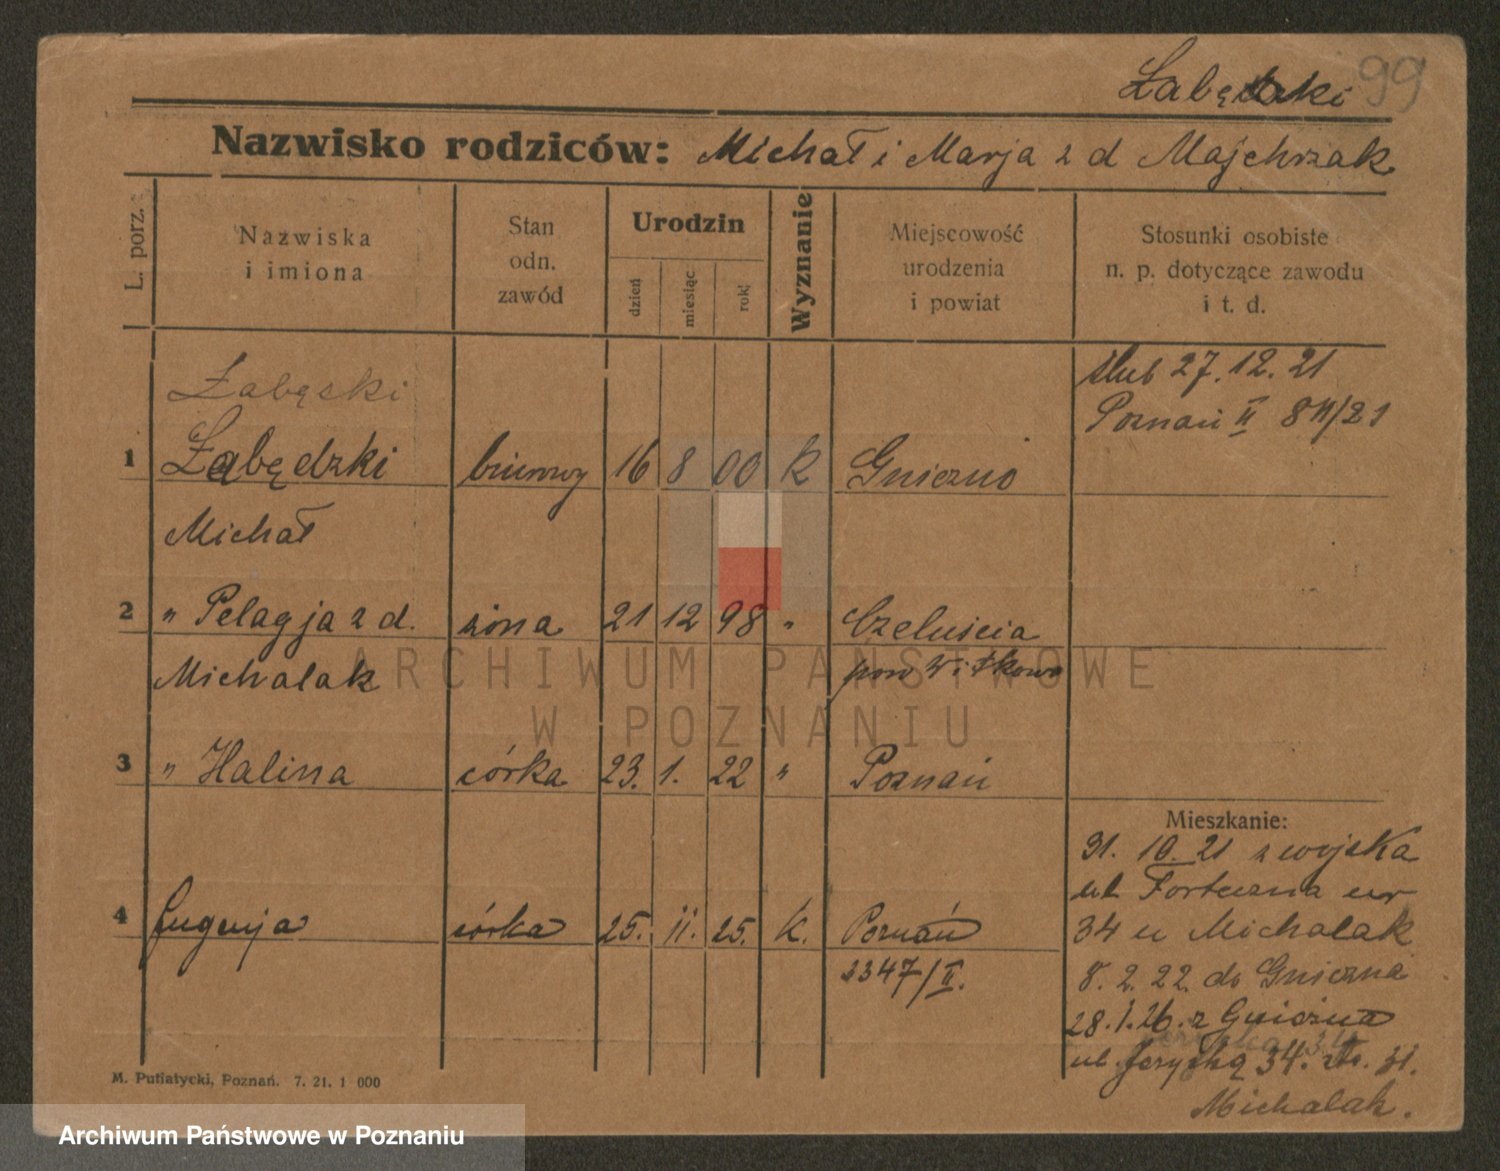 Łabędzki 99
Nazwisko rodziców: Michał i Marja z d Majchrzak
L. porz.
Nazwiska
i imiona
Stan
odn.
zawód
Urodzin
dzień
miesiąc
rok
Wyznanie
Miejscowość
urodzenia
i powiat
Stosunki osobiste
n. p. dotyczące zawodu
i t. d.
ślub 27. 12. 21
Poznań II
Łabęcki
1 Łabędzki biurowy 16 8 00 K Gniezno
Michał
2 " Pelagja z d. żona 21 12 98 " Czeluścia
Michalak pow Witkowo
3 " Halina córka 23. 1. 22 " Poznań
Mieszkanie:
31. 10. 21 z wojska
ul Forteczna nr
4 Eugenja córka 25. 11. 25. k. Poznań
34 u Michalak
3347/II.
8. 2. 22. do Gniezna
28. 1. 26. z Gniezna
ul. 34. 31.
Michalak.
M. Putiatycki, Poznań. 7. 21. 1 000
ARCHIWUM PAŃSTWOWE
W POZNANIU
Archiwum Państwowe w Poznaniu